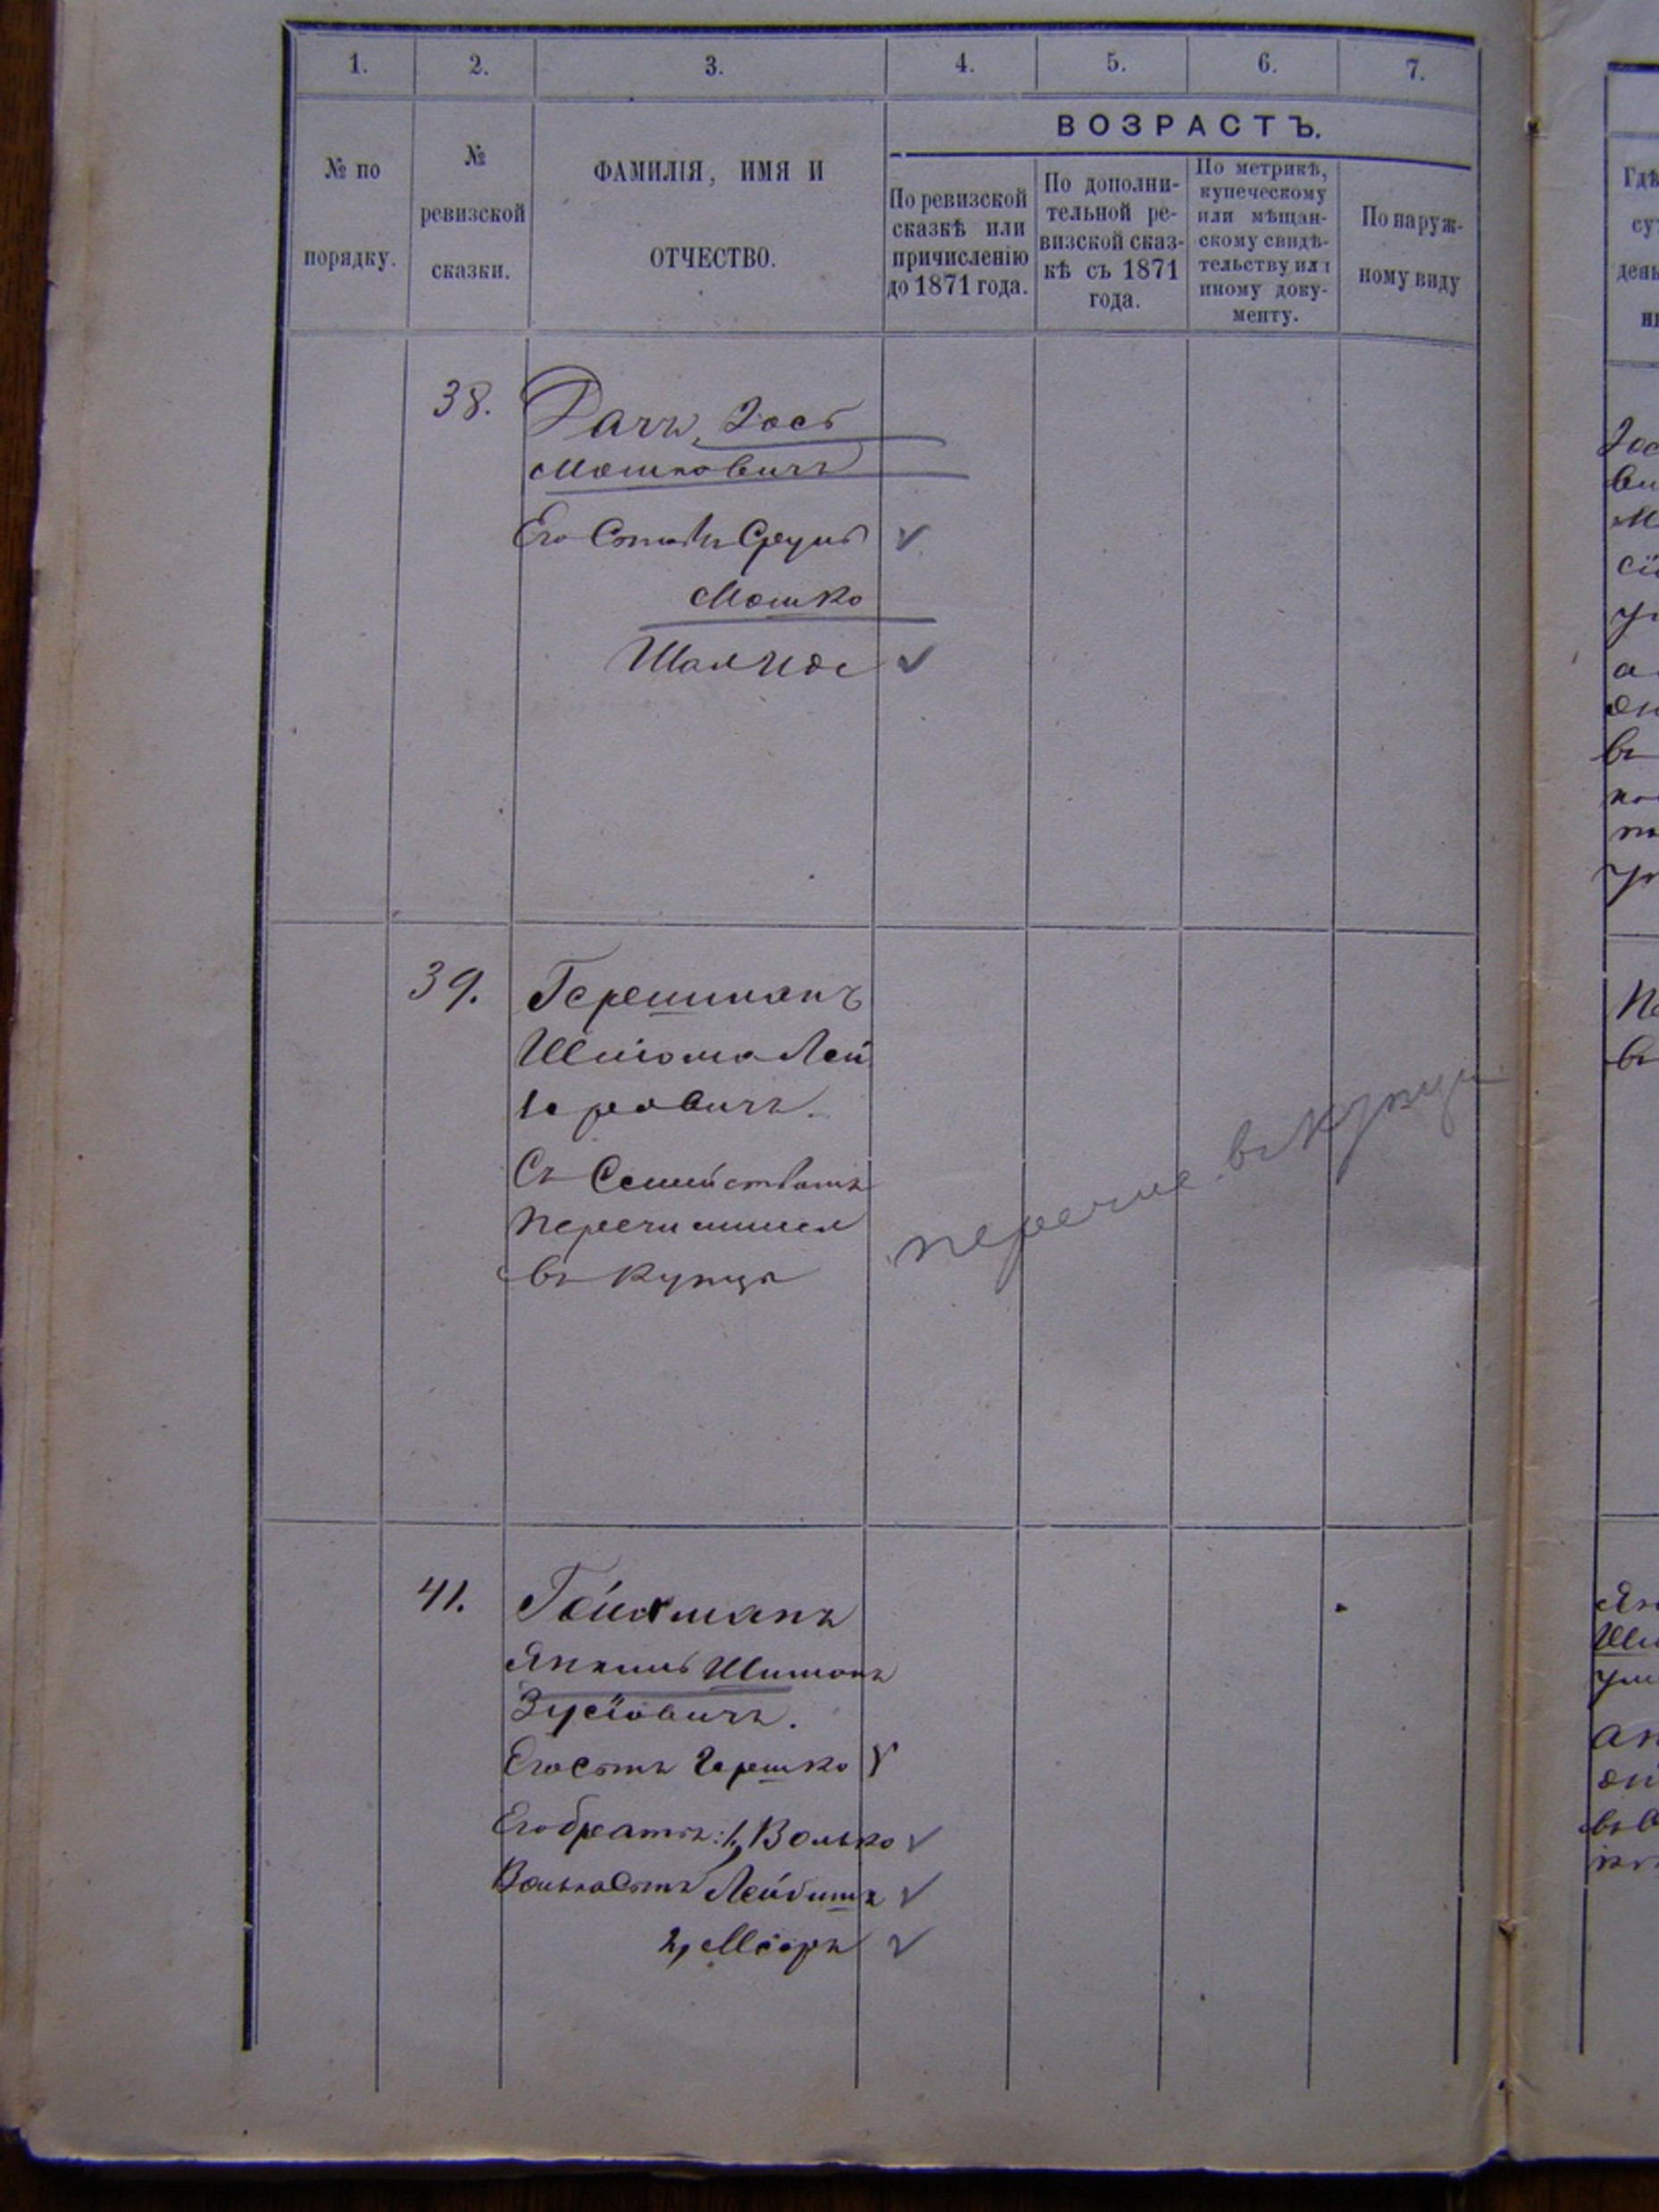 1.
2.
3.
4.
5.
6.
7.
№ по
порядку.
№
ревизской
сказки.
ФАМИЛІЯ, ИМЯ И
ОТЧЕСТВО.
ВОЗРАСТЪ.
По ревизской
сказкѣ или
причисленію
до 1871 года.
По дополни-
тельной ре-
визской сказ-
кѣ съ 1871
года.
По метрикѣ,
купеческому
или мѣщан-
скому свидѣ-
тельству или
иному доку-
менту.
По наруж-
ному виду
38.
Іось
Мошковичъ
Его Сыновья Сруль
Мошко
39.
Гершманъ
Шліома Лей
Съ Семействомъ
перечислился
въ купцы
перечис. въ купцы
41.
Янкель Шимонъ
Зусіовичъ.
Его сынъ Гершко
Его братья: 1, Волько
Волька Сынъ Лейбишъ
2, Мееръ